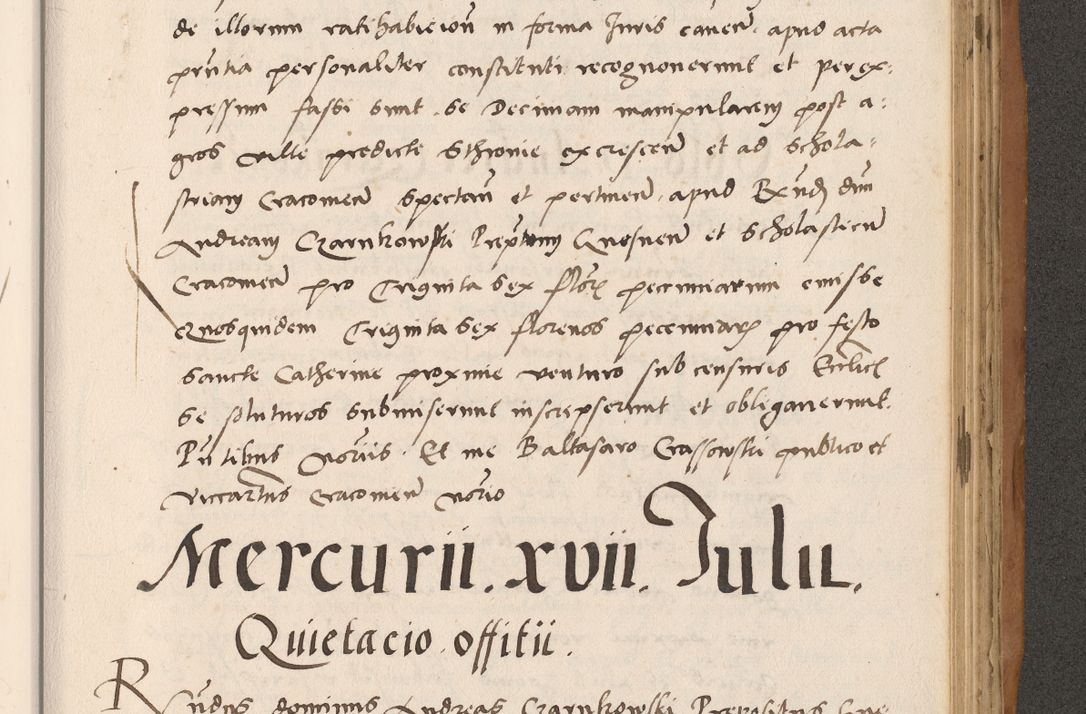 de illorum ratihabicioñ in forma Juris caveñ. apud acta
pñtia personaliter constituti recognoverunt et per ex:
pressum fassi sunt. se Decimam manipularem post a:
gros ville predicte Sthronie excrescen̄ et ad Schola:
striam Cracovien̄ spectañ et pertinen̄. apud Rx̄nd̄ dūm
Andream Czarnkowski Prep̄tum Gnesnen̄ et Scholasticū
Cracovien̄ pro Triginta sex flōr̄ pecuniarum emisse
Quosquidem Triginta sex florenos pecuniar̄ pro festo
Sancte Catherine proxime venturo sub censuris Ecclīcis
se soluturos submiserunt inscripserunt et obligaverunt.
Pn̄tibus Nor̄iis. Et me Baltasaro Crassowski publico et
Viccariatus Cracovien̄ nor̄io
Mercurii. xvii. Julii.
Quietacio. offitii.
Rx̄ndus dominus Andreas Czarnkowski Prepositus Gne